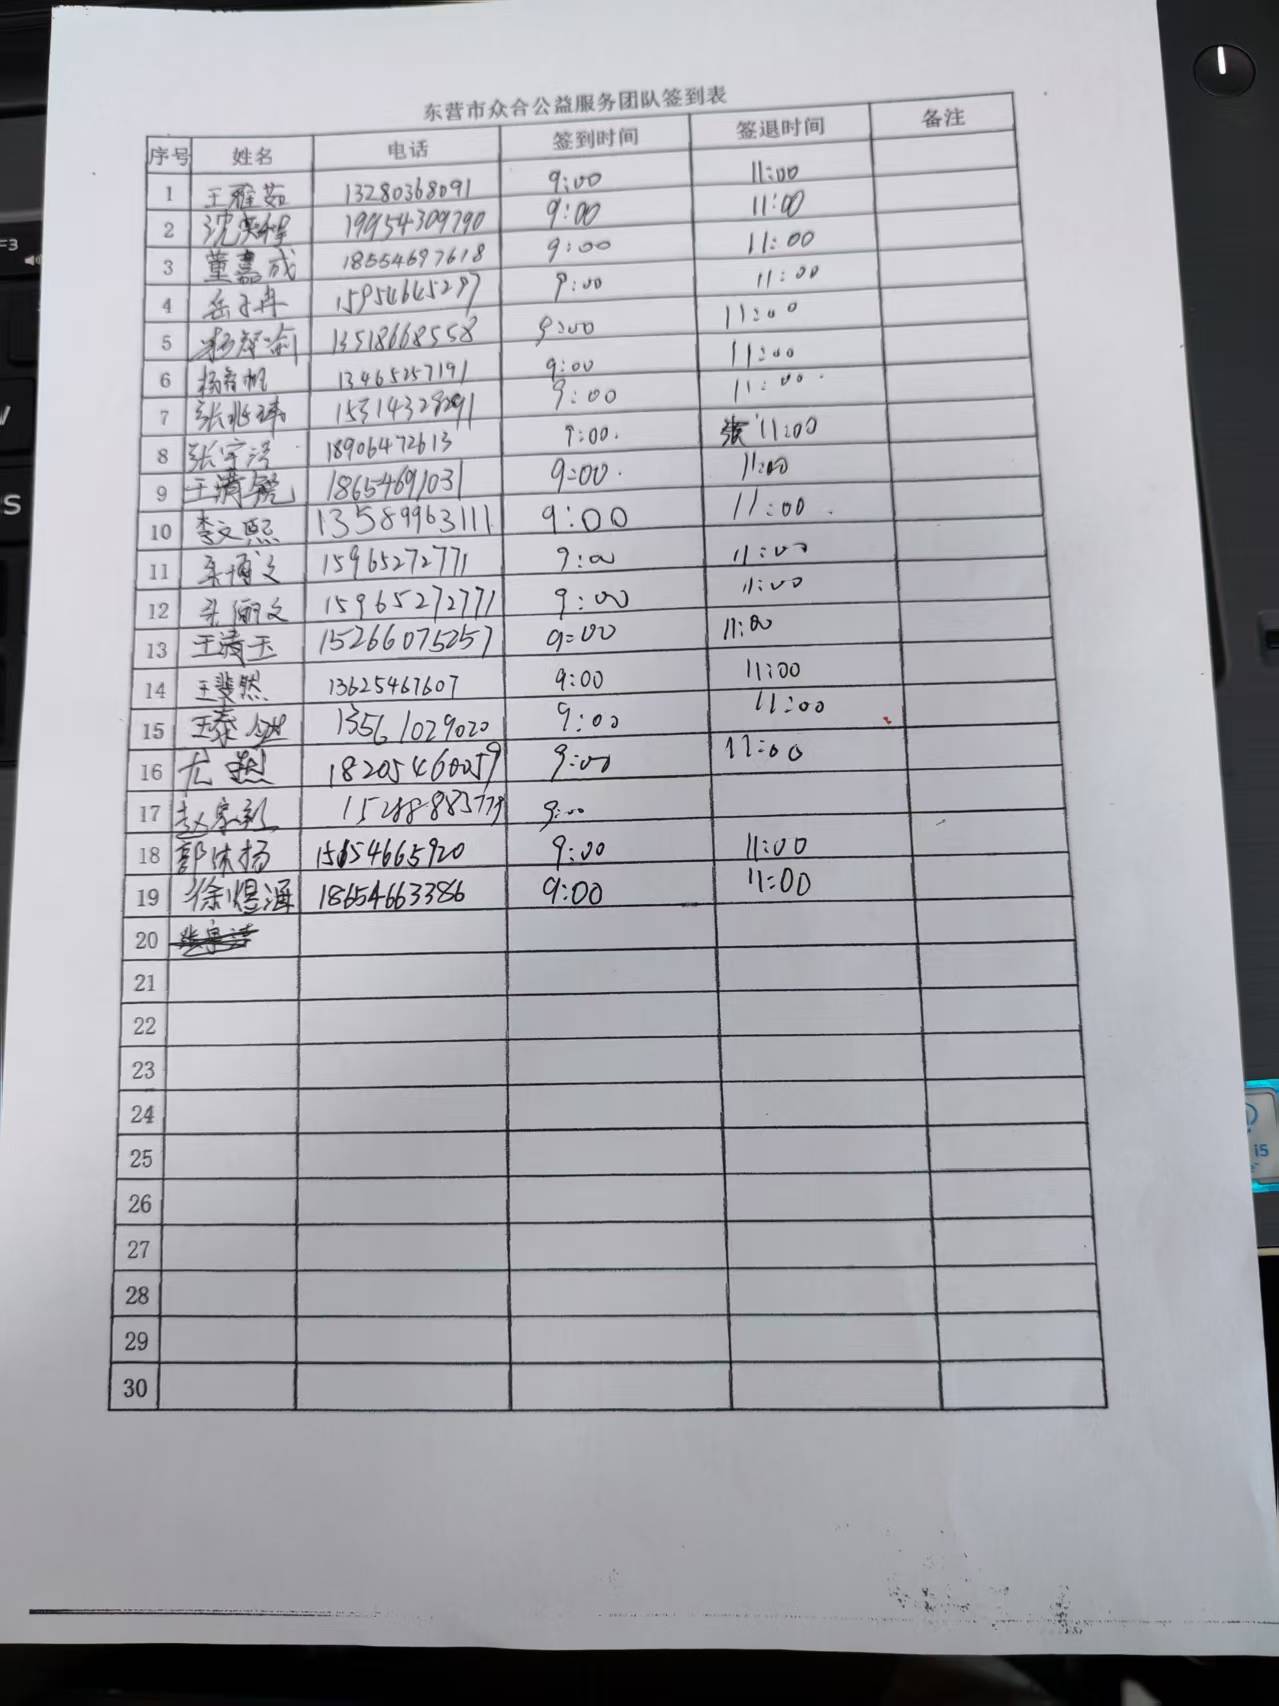 东营市众合公益服务团队签到表
序号 姓名 电话 签到时间 签退时间 备注
1 王雅茹 13280368091 9:00 11:00
2 沈奕桦 19954309790 9:00 11:00
3 董嘉成 18554697618 9:00 11:00
4 岳子冉 15954645297 9:00 11:00
5 13518668558 9:00 11:00
6 杨舒帆 13465257191 9:00 11:00
7 张兆琦 9:00 11:00
8 张宇浩 18906472613 9:00 张 11:00
9 王清 18654691031 9:00 11:00
10 李文熙 13589963111 9:00 11:00
11 博文 15965272771 9:00 11:00
12 俪文 15965272771 9:00 11:00
13 王清玉 15266075257 9:00 11:00
14 王斐然 13625467607 9:00 11:00
15 王泰 13561029020 9:00 11:00
16 尤 18205460059 9:00 11:00
17 赵家 9:00
18 郭沐扬 15654665920 9:00 11:00
19 徐煜涵 18654663386 9:00 11:00
20
21
22
23
24
25
26
27
28
29
30
i5
F3